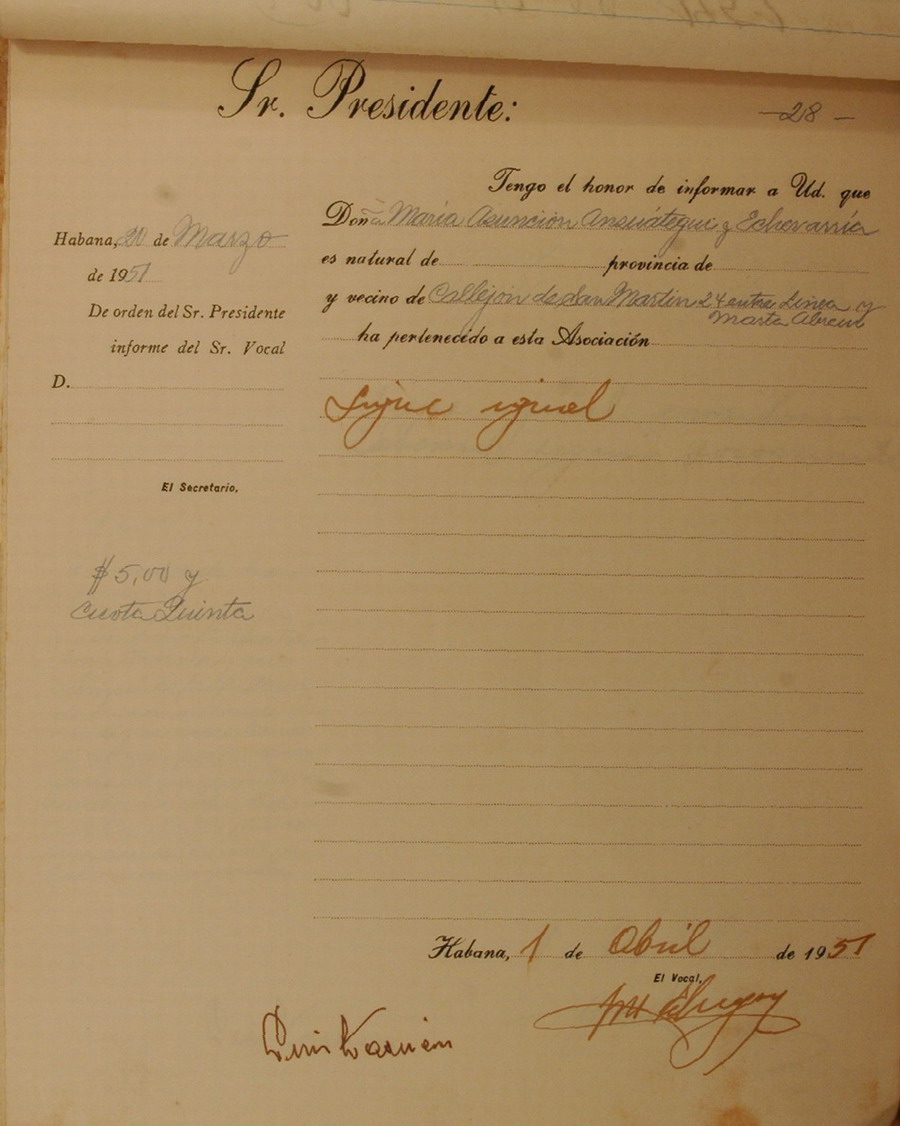 Sr. Presidente:
—28—
Tengo el honor de informar a Ud. que
Doña María Asunción Ansuátegui y Echevarría
es natural de provincia de
y vecino de Callejón de San Martin 24 entre Linea y
Marta Abreu
ha pertenecido a esta Asociación
Sigue igual
Habana, 20 de Marzo
de 1951
De orden del Sr. Presidente
informe del Sr. Vocal
D.
El Secretario,
$5,00 y
Cuota Quinta
Habana, 1 de Abril de 1951
El Vocal,
Luis